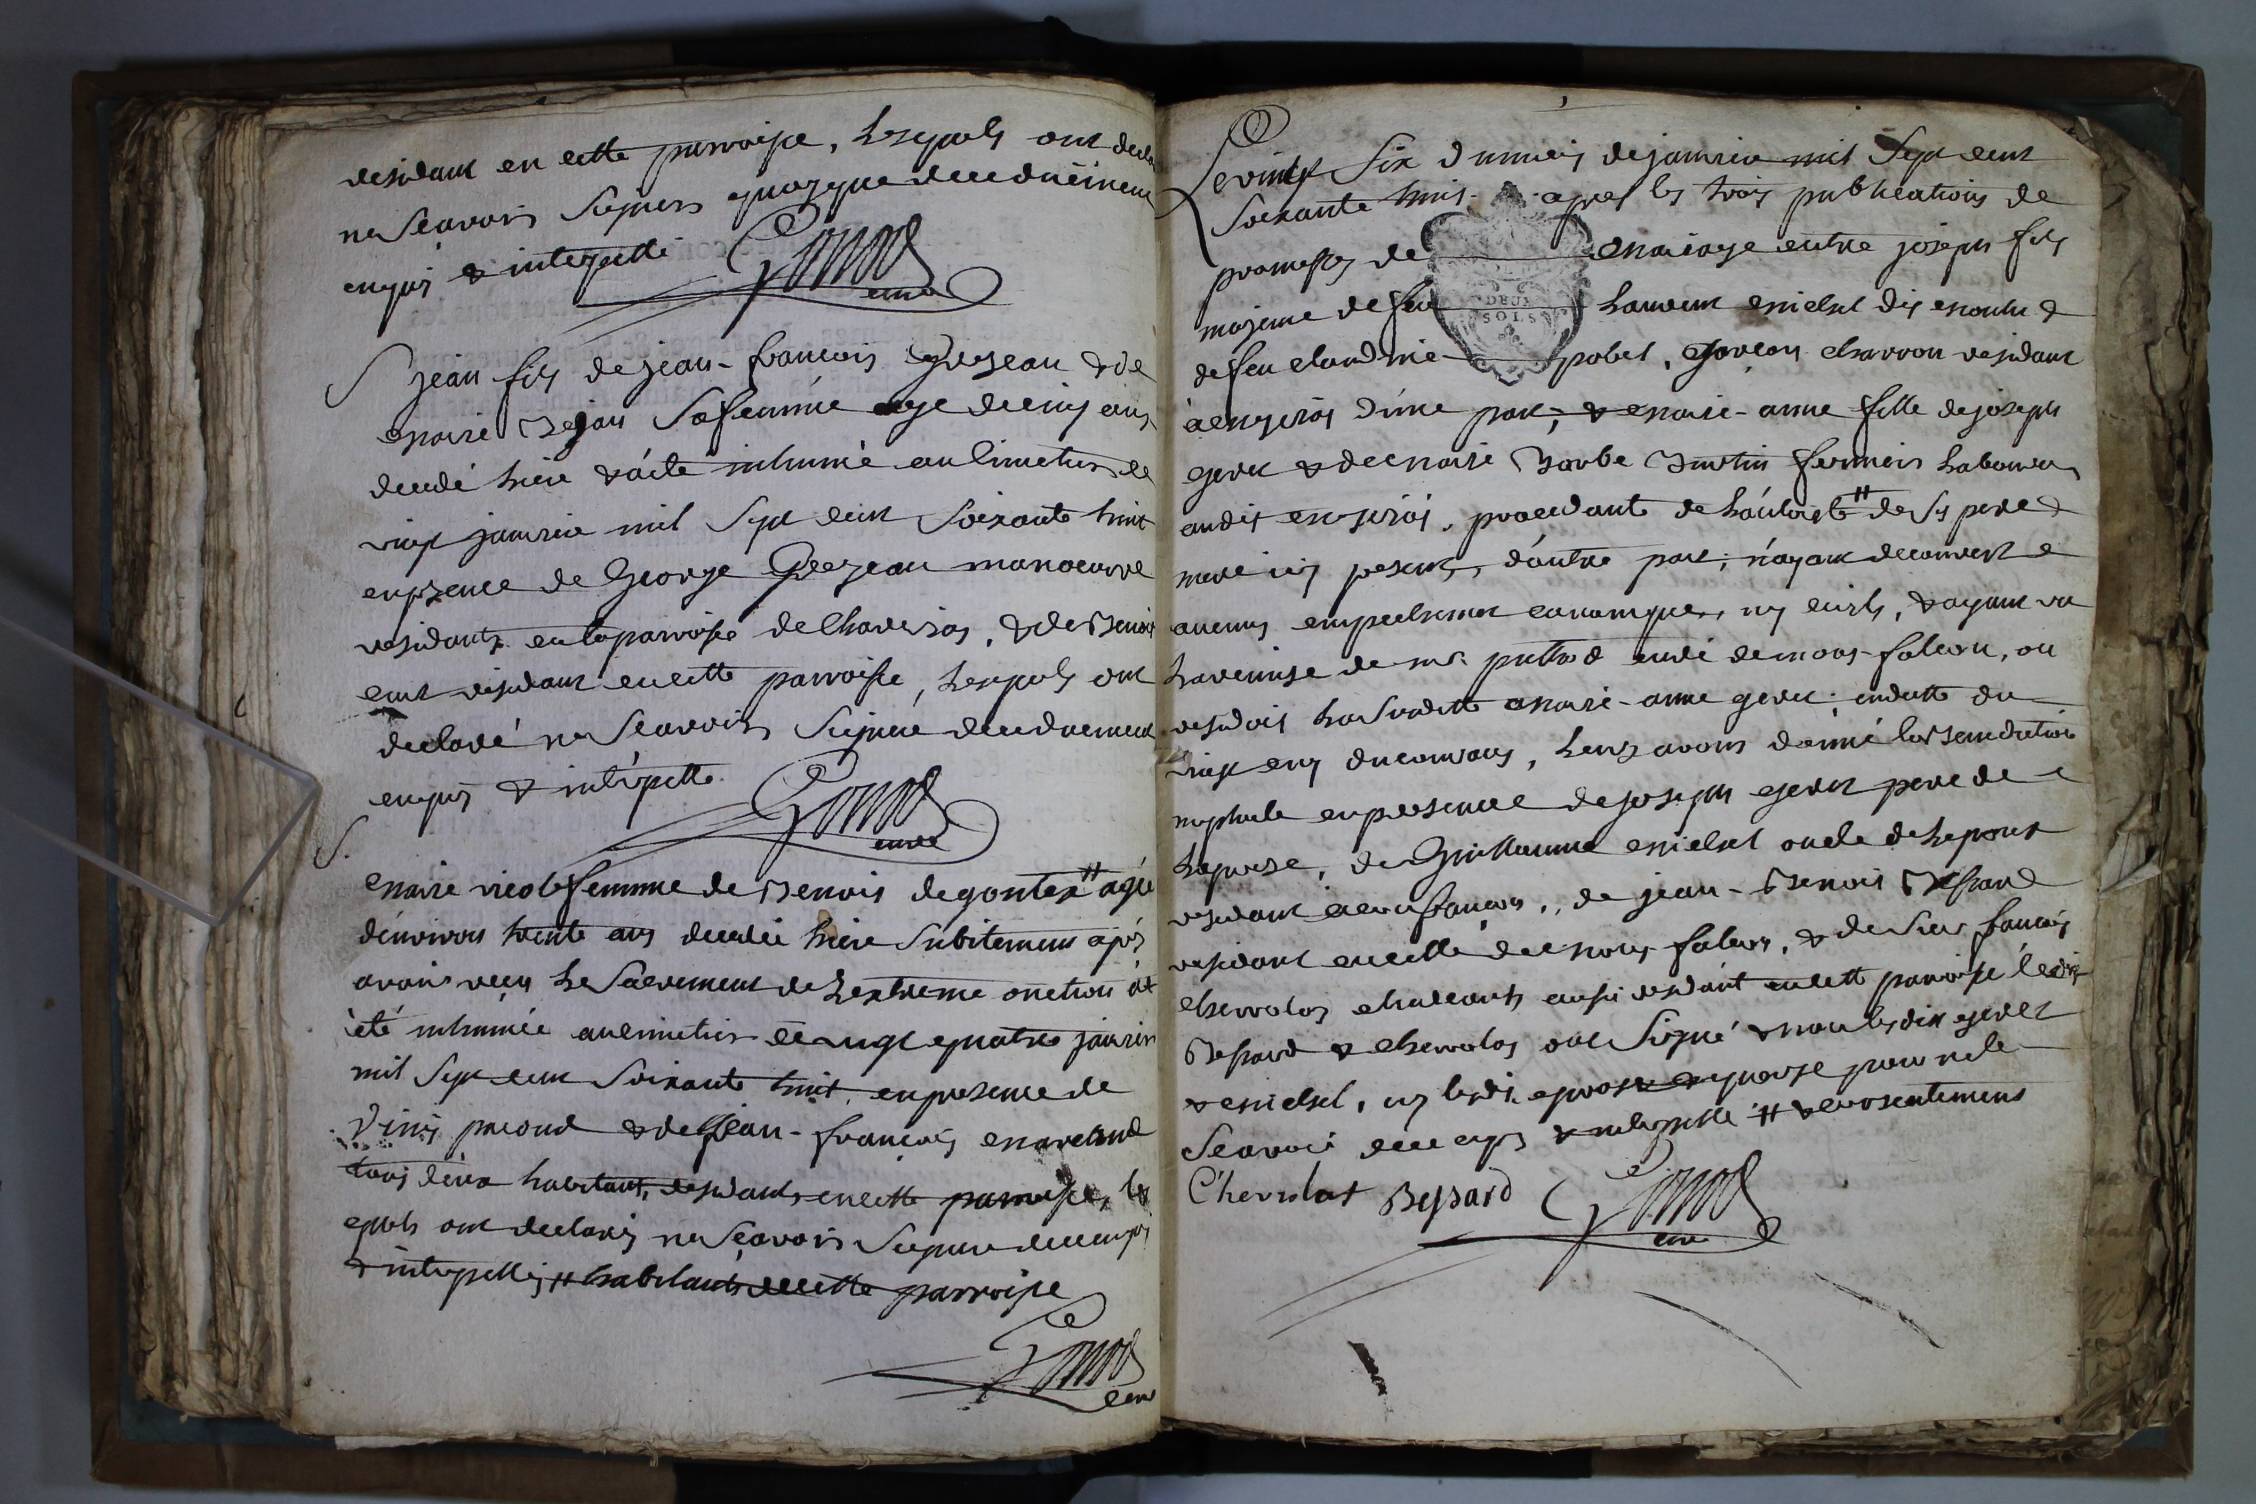 residant en cette parroisse, lesquels ont decla
ne sçavoir signer quoyque de ce düement
enquis & interpellé
Gonod
curé
S jean fils de jean-francois Grezeau & de
marie Bejan sa femme agé de cinq ans
decedé hier & a été inhumé au cimetiere le
vingt janvier mil sept cent soixante huit
en presence de George manoeuvre
residants en la parroisse de & de Benoit
residant en cette parroisse, lesquels ont
declaré ne sçavoir signer de ce duement
enquis & interpellé
Gonod
curé
S.
marie femme de Benoit degontex # agée
d'environ trente ans decedée hier subitement aprés
avoir reçu le sacrement de l'extreme onction at
été inhumée au cimetiere le vingt quatre janvier
mil sept cent soixante huit en presence de
Denis pacoud & de jean-francois marechal
tous deux habitant, residants en cette parroisse, les
quels ont declarés ne sçavoir signer de ce enquis
& interpellés # habitants de cette parroisse
Gonod
curé
Le vingt six du mois de janvier mil sept cent
soixante huit aprés les trois publications de
promesses de mariage entre joseph fils
majeur de feu Laurent michel dit &
de feu claudine pobel, garçon charron residant
à d'une part, & marie-anne fille de joseph
gerel & de marie Barbe fermiers laboureurs
audit procedante de l'autorité # de ses pere &
mere icy presents, d'autre part, n'ayant decouvert
aucuns empechement canonique, ny civils, & ayant vu
la remise de mr. curé de mons-falcon, ou
residoit la susdite marie-anne gerel, en datte du
vingt cinq du courant, leurs avons donné la benediction
nuptiale en presence de joseph gerel pere de
l'epouse, de Guillaume michel oncle de l'epoux
residant de jean-Benoit Bessard
residant en celle de mons falcon, & de sieur francois
chevrolat aussi residant en cette parroisse lesdits
Bessard & chevrolat ont signé & non lesdits gerel
& michel, ny lesdits epoux & epouse pour ne le
sçavoir de ce enquis & interpellé # & consentement
Chevrolat Bessard Gonod
curé
DEUX
SOLS